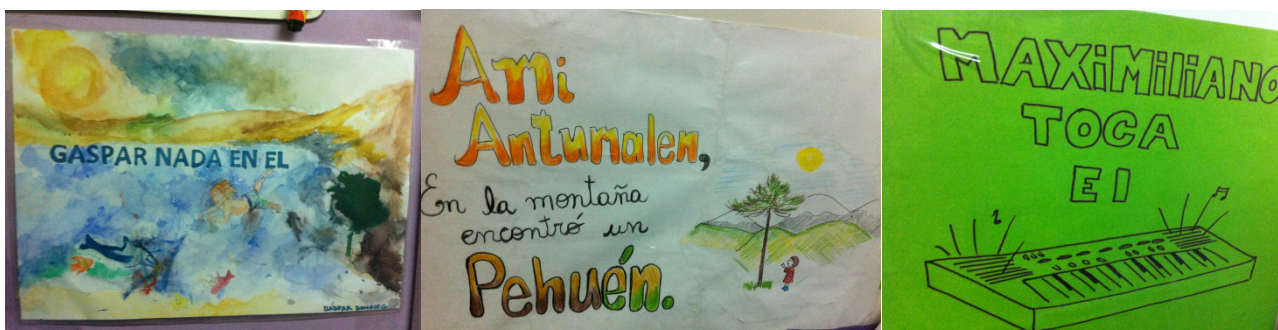 GASPAR NADA EN EL
Ami
Antumalen,
En la montaña
encontró un
Pehuén.
MAXiMiliANO
TOCA
El